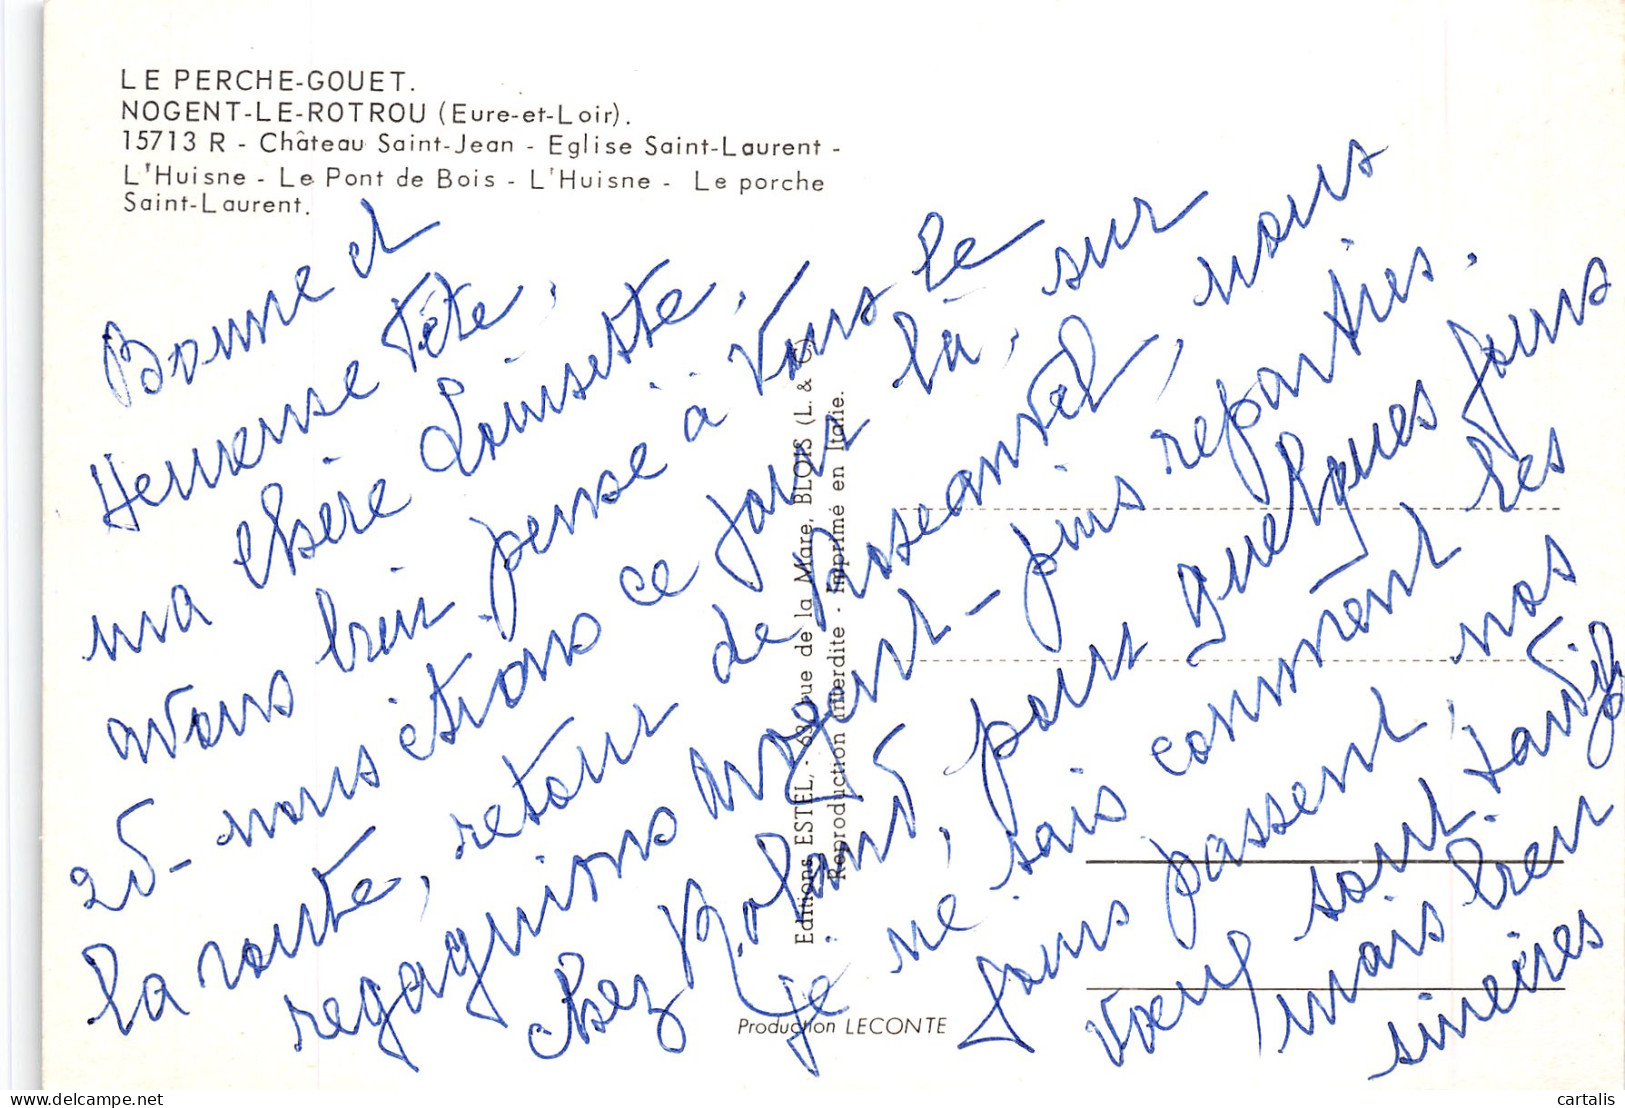 LE PERCHE-GOUET.
NOGENT-LE-ROTROU (Eure-et-Loir).
15713 R - Château Saint-Jean - Eglise Saint-Laurent -
L'Huisne - Le Pont de Bois - L'Huisne - Le porche
Saint-Laurent.
Bonne et
Heureuse Fête,
ma chère Louisette,
avons bien pensé à vous le
25 - nous étions ce jour là, sur
la route, retour de Roseanvel, nous
regagnions Nogent - puis reparties.
chez Roland, pour quelques jours
je ne sais comment les
jours passent, nos
voeux sont tardifs
mais bien
sincères
Editions ESTEL, - 63, rue de la Mare, BLOIS (L. & C.)
Reproduction interdite - Imprimé en Italie.
Production LECONTE
https://www.delcampe.net
cartalis